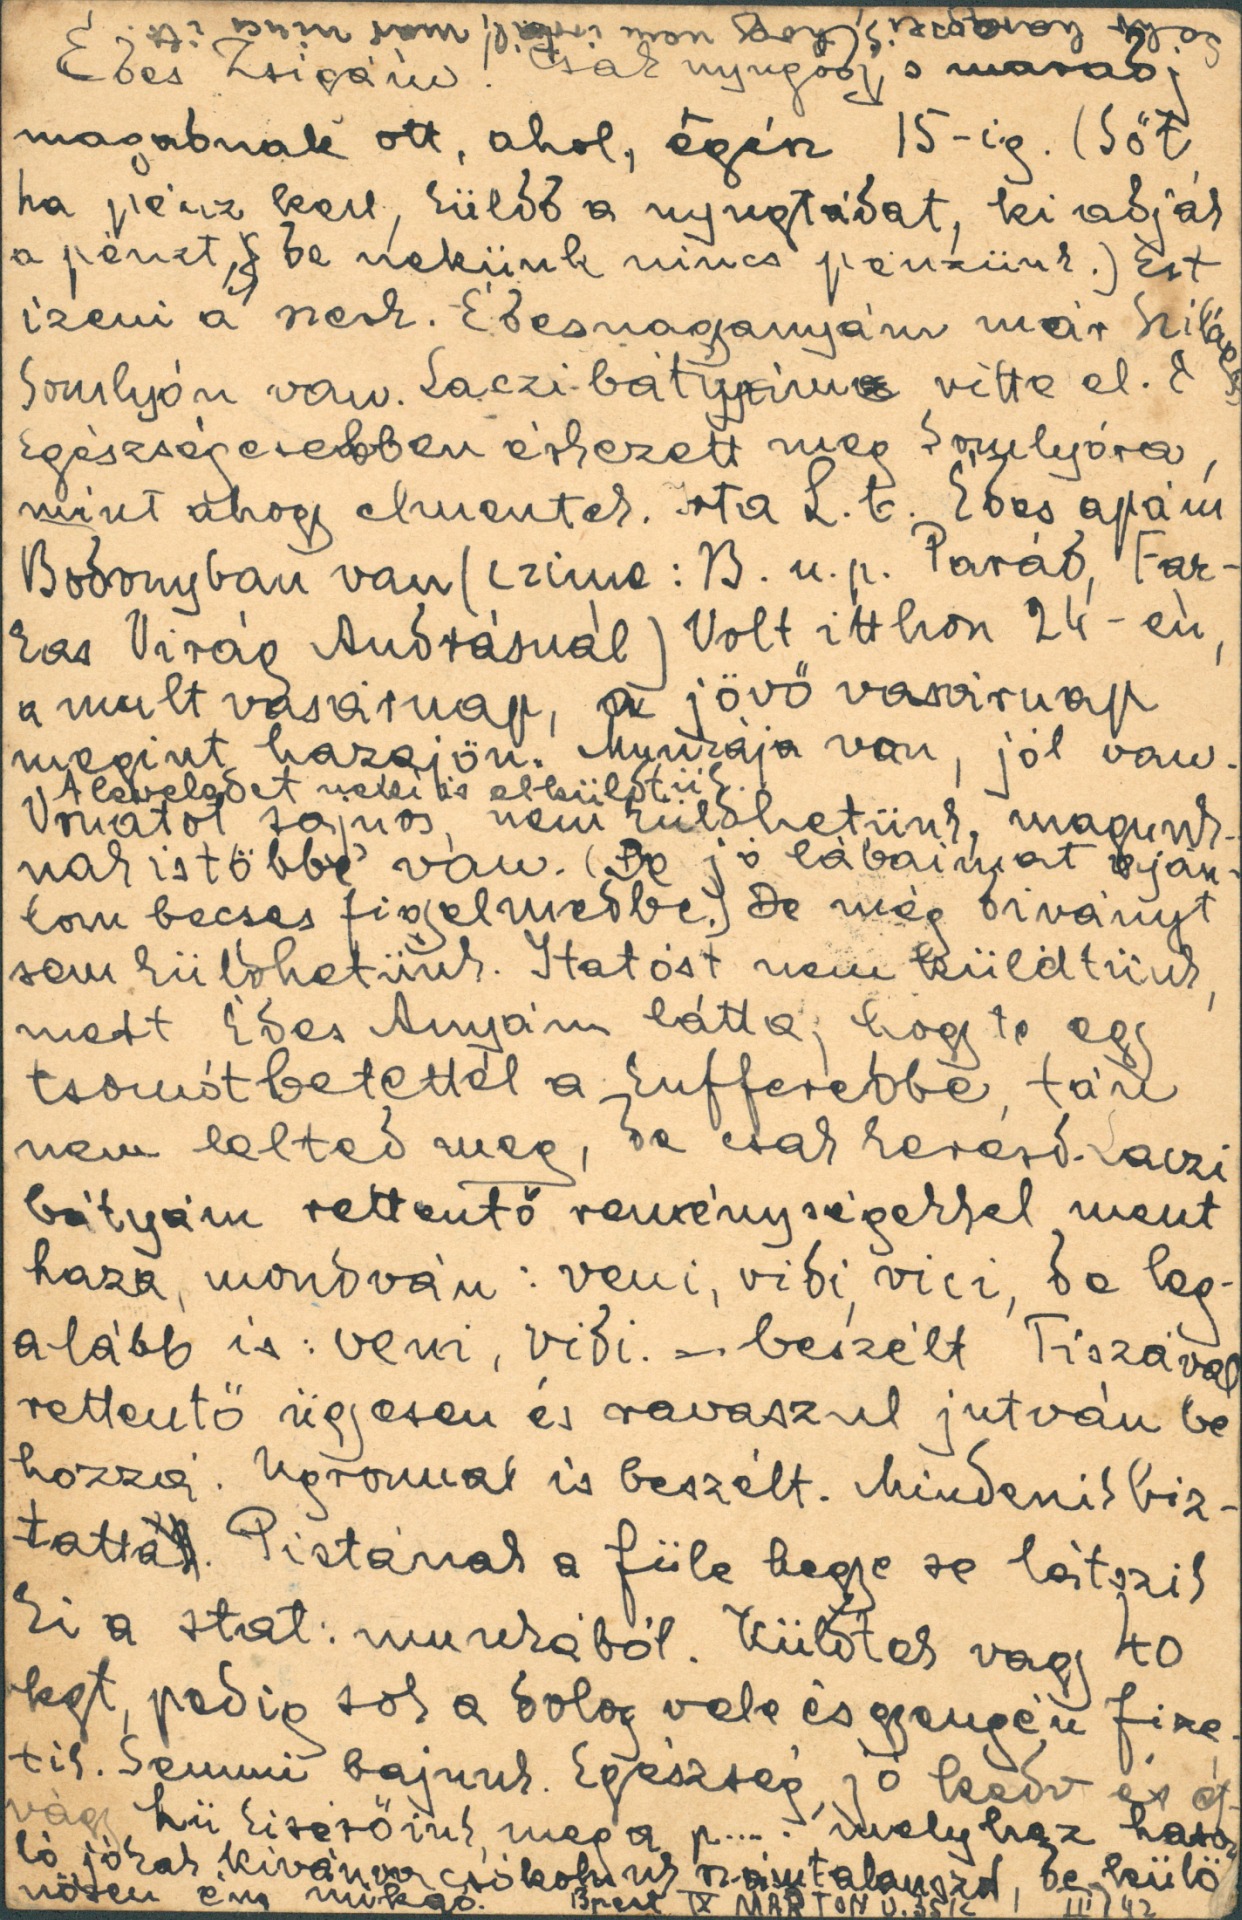 Édes Zsigám! Csak nyugodj s maradj
magadnak ott, ahol, égén 15-ig. (Sőt
ha pénz kell, küldd a nyugtádat, ki adják
a pénzt, de nekünk nincs pénzünk.) Ezt
izeni a szerk. Édesnagyanyám már Szilágy
Somlyón van. Laczi bátyáim vitte el. É
Egészségesebben érkezett meg Somlyóra,
mint ahogy elmentek. Irta L. b. Édes apám
Bodonyban van (czime: B. u. p. Parád, Far-
kas Virág Andrásnál) Volt itthon 24-én,
a mult vasárnap, a jövő vasárnap
megint hazajön. Munkája van, jól van.
A leveledet neki is elküldtük.
Vonatot sajnos, nem küldhetünk, magunk-
nak is többe van. (De jó lábaimat aján-
lom becses figyelmedbe.) De még diványt
sem küldhetünk. Itatóst nem küldtünk,
mert Édes Anyám látta, hogy te egy
tsomót betettél a kufferedbe, tán
nem lelted meg, de csak keresd. Laczi
bátyám rettentő reménységekkel ment
haza, mondván: veni, vidi, vici, de leg-
alább is: veni, vidi. – beszélt Tiszával
rettentő ügyesen és ravaszul jutván be
hozzá. Ugronnal is beszélt. Mindenik biz-
tatta. Pistának a füle hegye se látszik
ki a stat: munkából. Küldtek vagy 40
kgt, pedig sok a dolog vele és gyengén fize-
tik. Semmi bajunk. Egészség, jó kedv és ét-
vágy hü kisérőink, meg a p.... melyhez hason
ló jókat kivánva csókolunk számtalanszor, de külö
nösen én mukgo. Bpest IX MÁRTON U. 35/c III/42